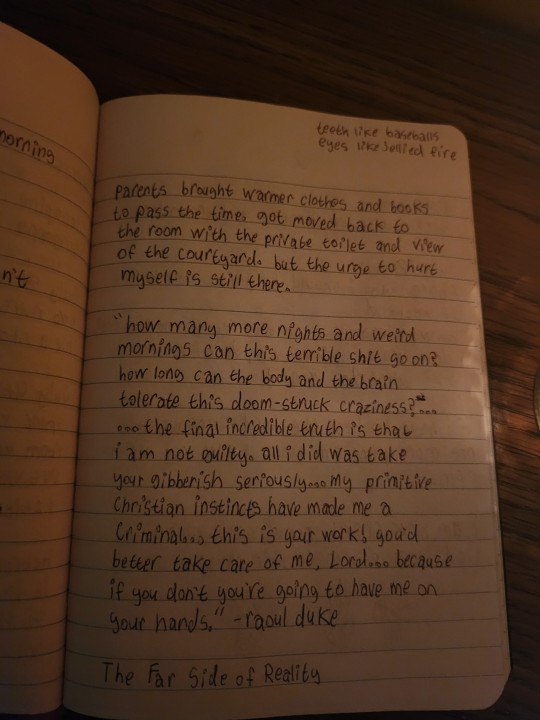 morning
n't
teeth like baseballs
eyes like jellied fire
parents brought warmer clothes and books
to pass the time. got moved back to
the room with the private toilet and view
of the courtyard. but the urge to hurt
myself is still there.
"how many more nights and weird
mornings can this terrible shit go on?
how long can the body and the brain
tolerate this doom-struck craziness?"...
...the final incredible truth is that
i am not guilty. all i did was take
your gibberish seriously... my primitive
Christian instincts have made me a
Criminal... this is your work! you'd
better take care of me, Lord... because
if you don't you're going to have me on
your hands." -raoul duke
The Far Side of Reality